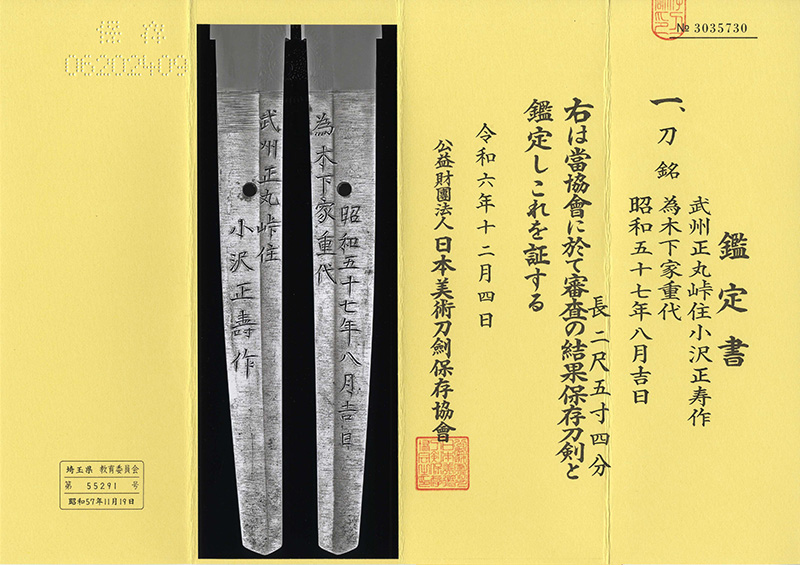 № 3035730
鑑定書
一、刀 銘 武州正丸峠住小沢正寿作
為木下家重代
昭和五十七年八月吉日
長 二尺五寸四分
右は當協會に於て審査の結果保存刀剣と
鑑定しこれを証する
令和六年十二月四日
公益財團法人 日本美術刀劍保存協會
為木下家重代
昭和五十七年八月吉日
武州正丸峠住
小沢正壽作
保存
06202409
埼玉県 教育委員会
第 55291 号
昭和57年11月19日